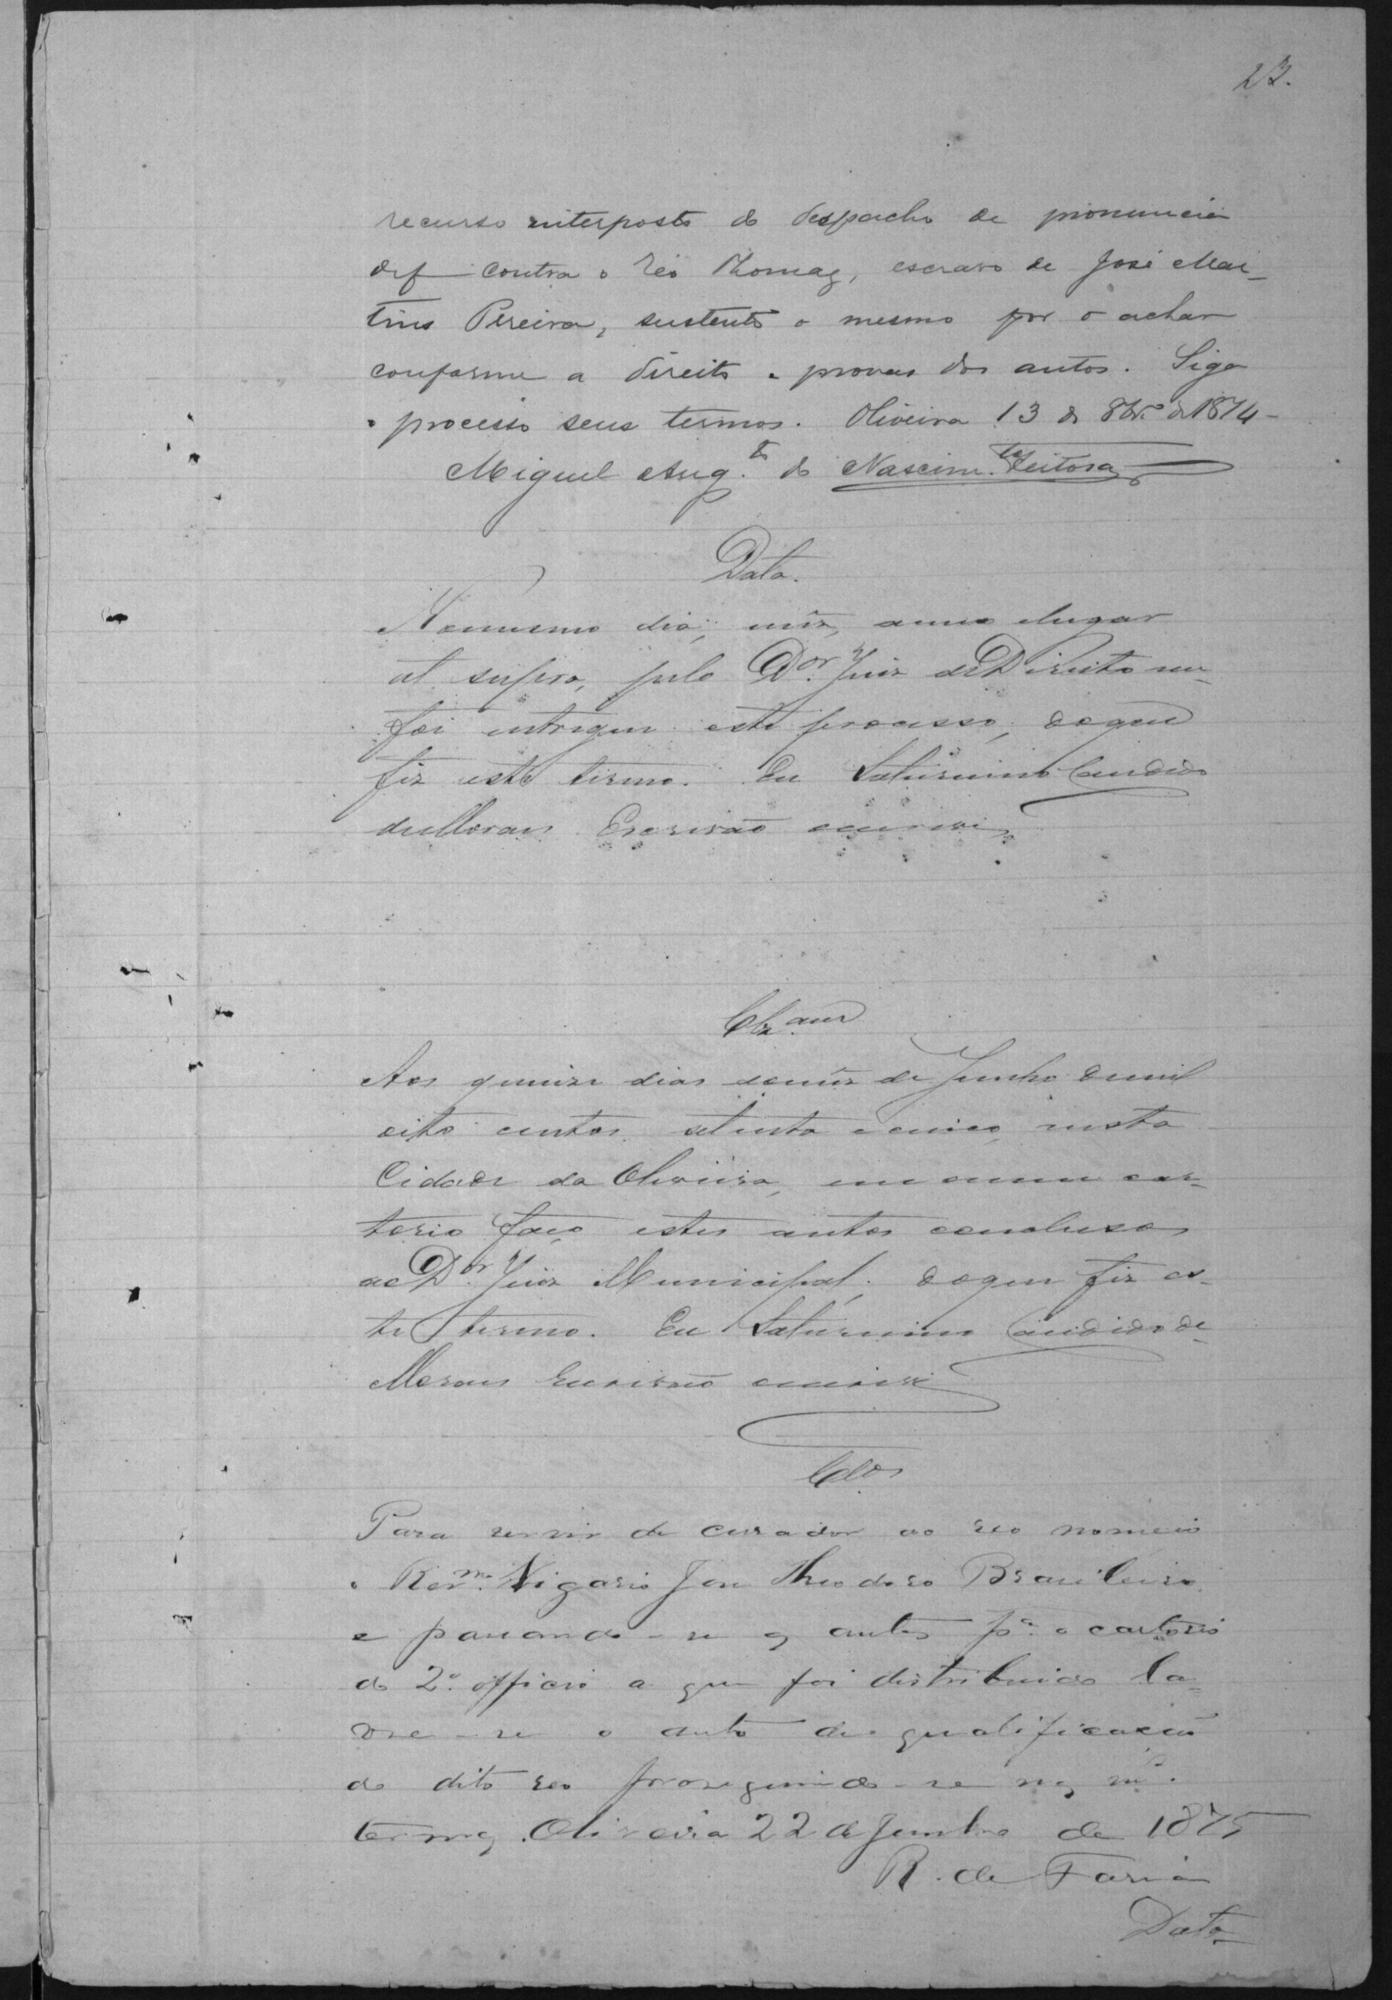 23.
recurso interposto do despacho de pronuncia
de f contra o réo Thomaz, escravo de José Mar-
tins Pereira, sustento o mesmo por o achar
conforme a direito e provas dos autos. Siga
o processo seus termos. Oliveira 13 de 8br.º de 1874 -
Miguel Aug.to do Nascim.to Feitosa
Data.
No mesmo dia, mez, anno e lugar
ut supra, pelo D.or Juiz de Direito me
foi entregue este processo, do que
fiz este termo. Eu Saturnino Candido
de Moraes Escrivão escrevi
Clz.am
Aos quinze dias do mez de Junho de mil
oito centos setenta e cinco, nesta
Cidade da Oliveira, em o meu car-
torio faço estes autos conclusos
ao D.or Juiz Municipal; do que fiz es-
te termo. Eu Saturnino Candido de
Moraes Escrivão escrevi
Clos
Para servir de curador ao reo nomeio
o Rev.mo Vigario José Theodoro Brasileiro
e passando-se os autos p.a o cartorio
do 2.º officio a que foi distribuido la-
vre-se o auto de qualificação
do dito reo proseguindo-se nos m.os
termos. Oliveira 22 de Junho de 1875
R. de Faria
Data